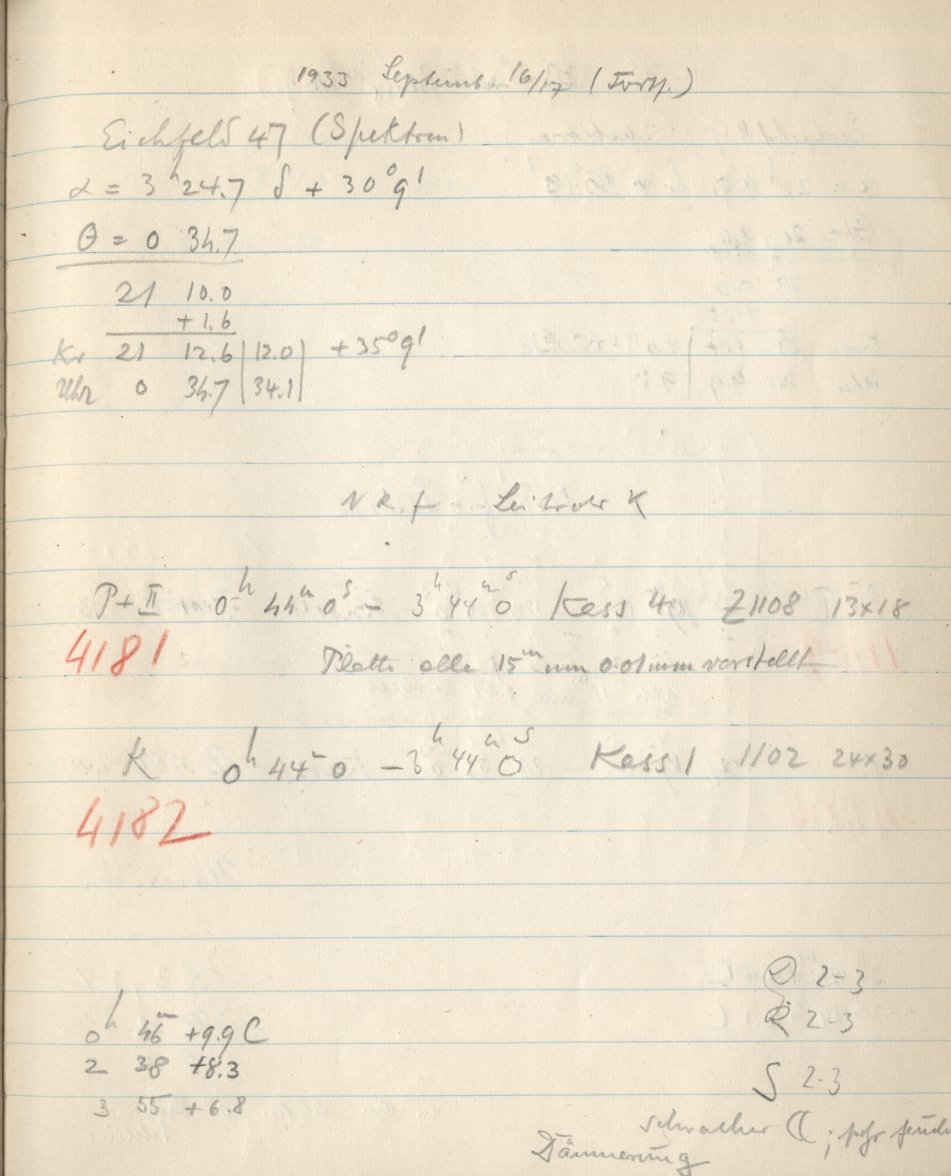 1933 Septemb. 16/17 (Forts.)
Eichfeld 47 (Spektren)
α = 3ʰ 24.7 δ + 30° 9'
θ = 0 34.7
21 10.0
+1.6
Kr 21 12.6 | 12.0 | +35° 9'
Uhr 0 34.7 | 34.1 |
K
P+II 0ʰ 44ᵐ 0ˢ – 3ʰ 44ᵐ 0ˢ Kass 4 Z1108 13x18
4181 Platte alle 15ᵐ um 0.01mm verstellt
K 0ʰ 44ᵐ 0 – 3ʰ 44ᵐ 0ˢ Kass 1 1102 24x30
4182
2-3
0ʰ 46ᵐ +9.9 C R 2-3
2 38 +8.3
S 2-3
3 55 +6.8
schwacher ☾; sehr feucht
Dämmerung